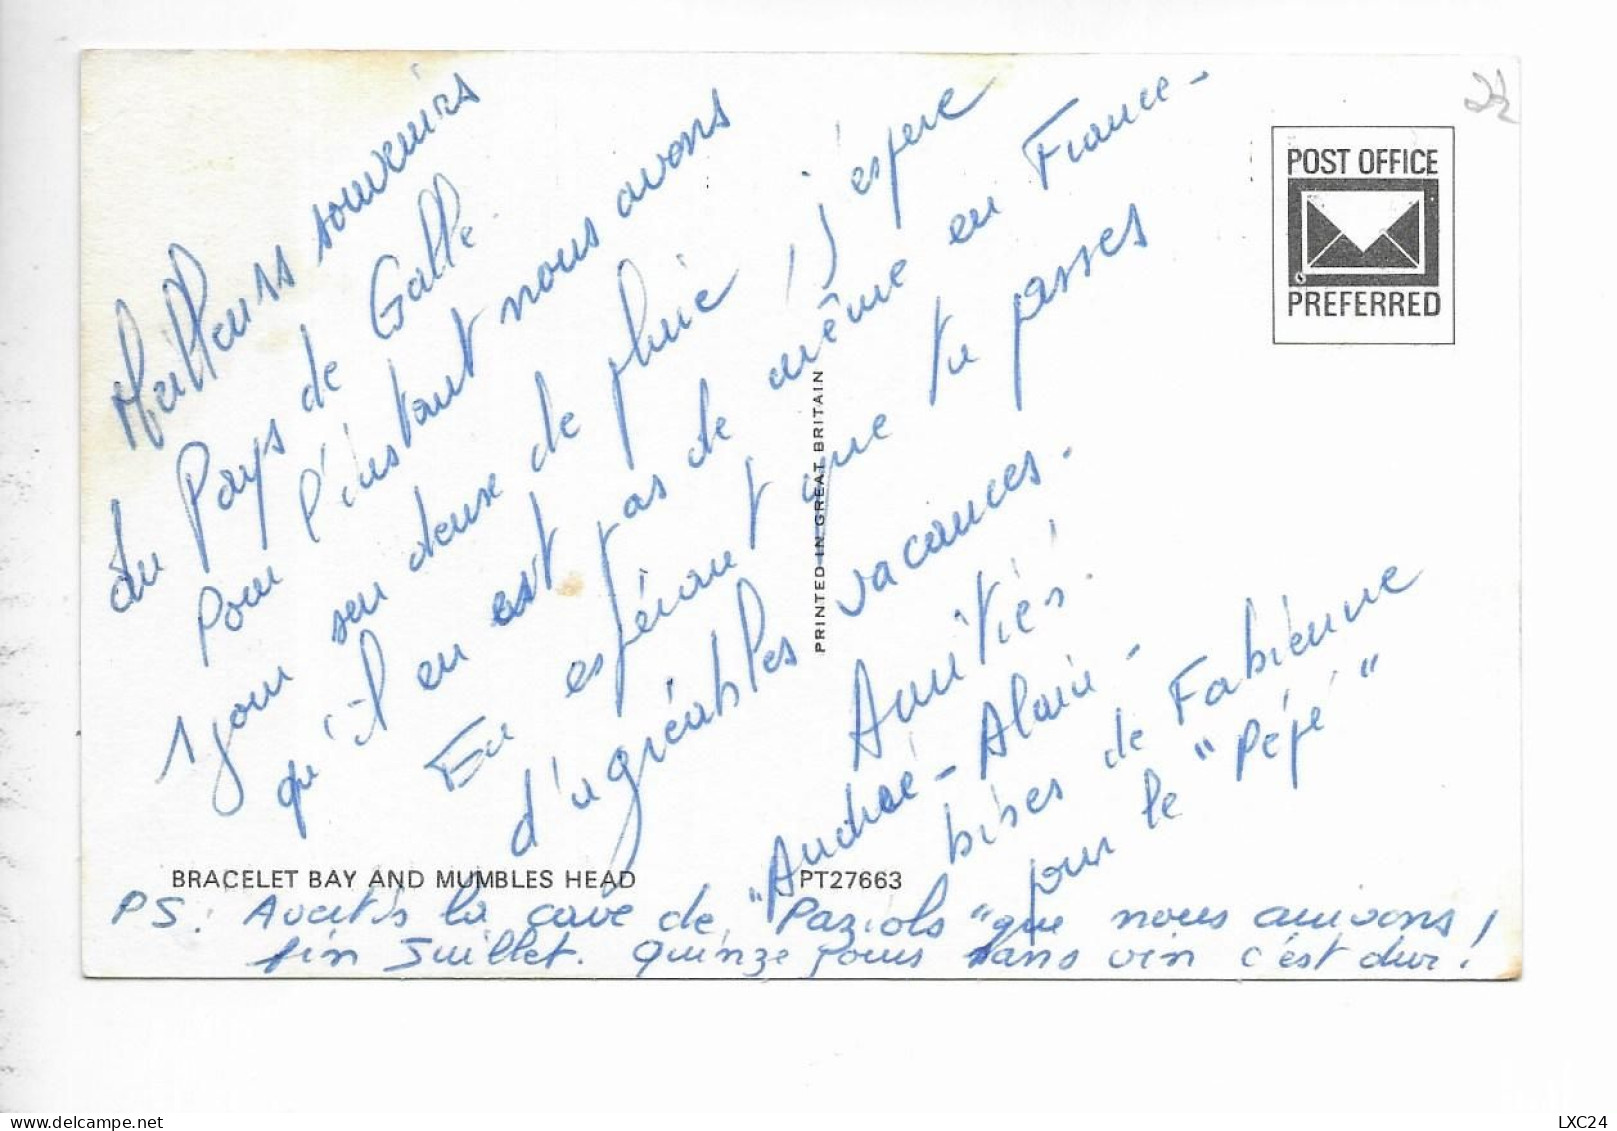 Meilleurs souvenirs
du Pays de Galle.
Pour l'instant nous avons
1 jour sur deux de pluie, j'espere
qu'il en est pas de même en France -
En espérant que tu passes
d'agréables vacances.
Amitiés
Andrée - Alain -
bises de Fabienne
pour le "Pépé"
POST OFFICE
PREFERRED
PRINTED IN GREAT BRITAIN
BRACELET BAY AND MUMBLES HEAD
PT27663
PS: Avertis la cave de "Paziols" que nous arrivons
fin Juillet. Quinze jours sans vin c'est dur!
LXC24